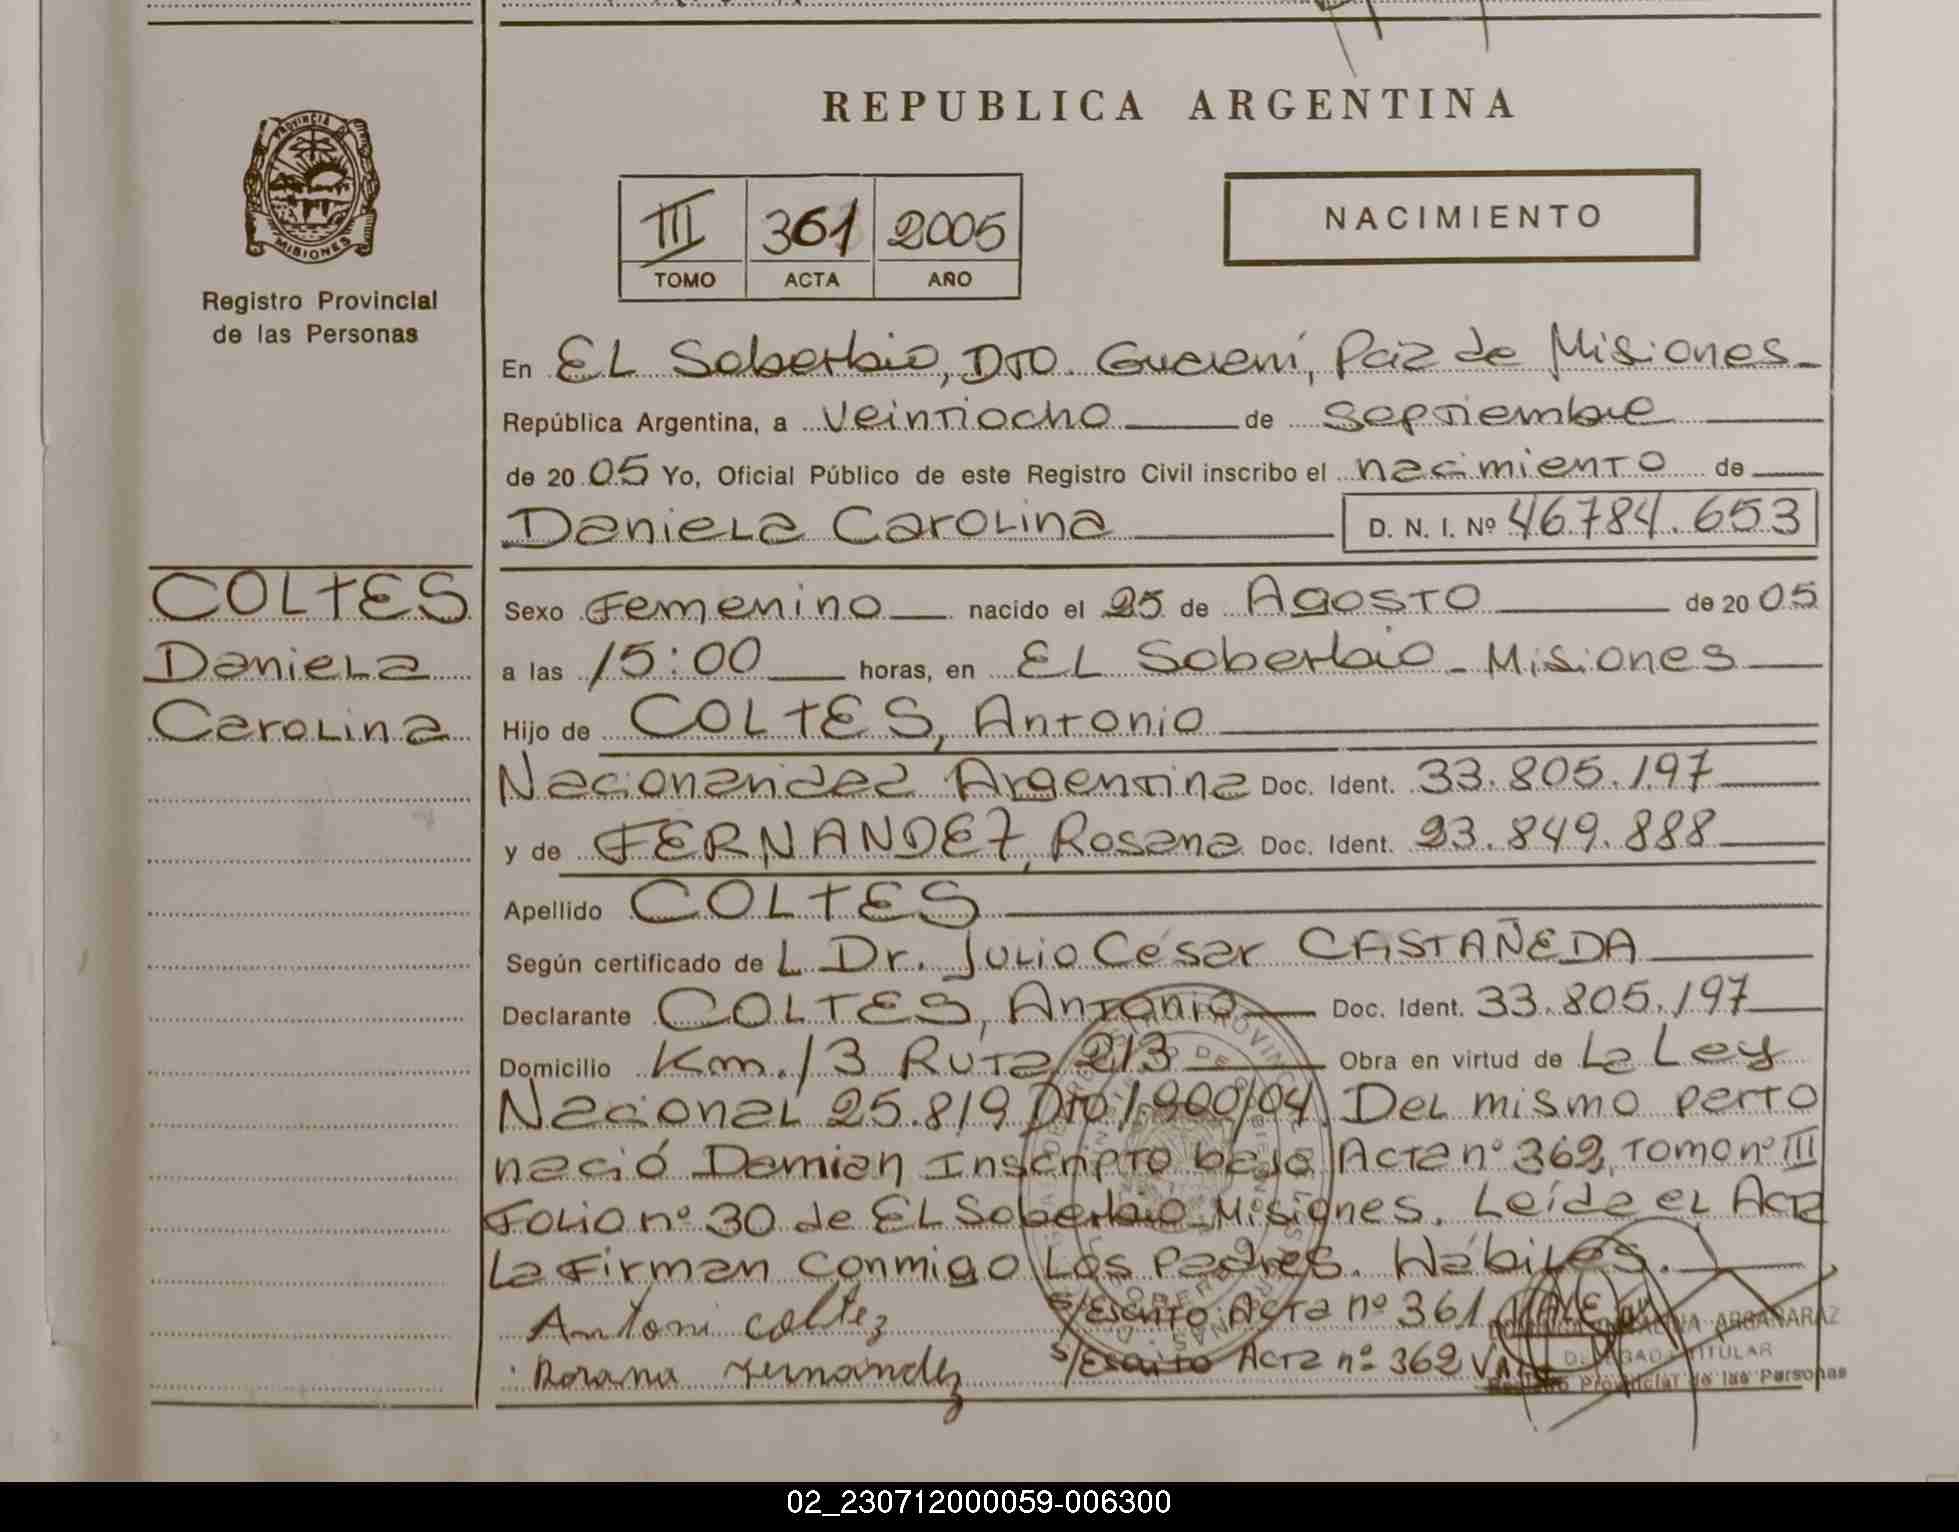 REPUBLICA ARGENTINA
PROVINCIA DE MISIONES
Registro Provincial
de las Personas
III 361 2005
TOMO ACTA AÑO
NACIMIENTO
En EL Soberbio, DTO. Guaraní, Pcia de Misiones
República Argentina, a veintiocho de septiembre
de 2005 Yo, Oficial Público de este Registro Civil inscribo el nacimiento de
Daniela Carolina D. N. I. Nº 46784.653
COLTES
Daniela
Carolina
Sexo Femenino nacido el 25 de Agosto de 2005
a las 15:00 horas, en EL Soberbio - Misiones
Hijo de COLTES, Antonio
Nacionalidad Argentina Doc. Ident. 33.805.197
y de FERNANDEZ, Rosana Doc. Ident. 23.849.888
Apellido COLTES
Según certificado de L Dr. Julio César CASTAÑEDA
Declarante COLTES, Antonio Doc. Ident. 33.805.197
Domicilio Km. 13 Ruta 213 Obra en virtud de La Ley
Nacional 25.819 Dto 1.900/04. Del mismo parto
nació Damian Inscripto bajo Acta nº 362, Tomo nº III
Folio nº 30 de EL Soberbio - Misiones. Leída el Acta
La Firman conmigo Los Padres. Hábiles.
Antoni coltez s/Escrito Acta nº 361 VALE
Rosana Fernandez s/Escrito Acta nº 362 VALE
ARGAÑARAZ
DELEGADA TITULAR
Registro Provincial de las Personas
02_230712000059-006300